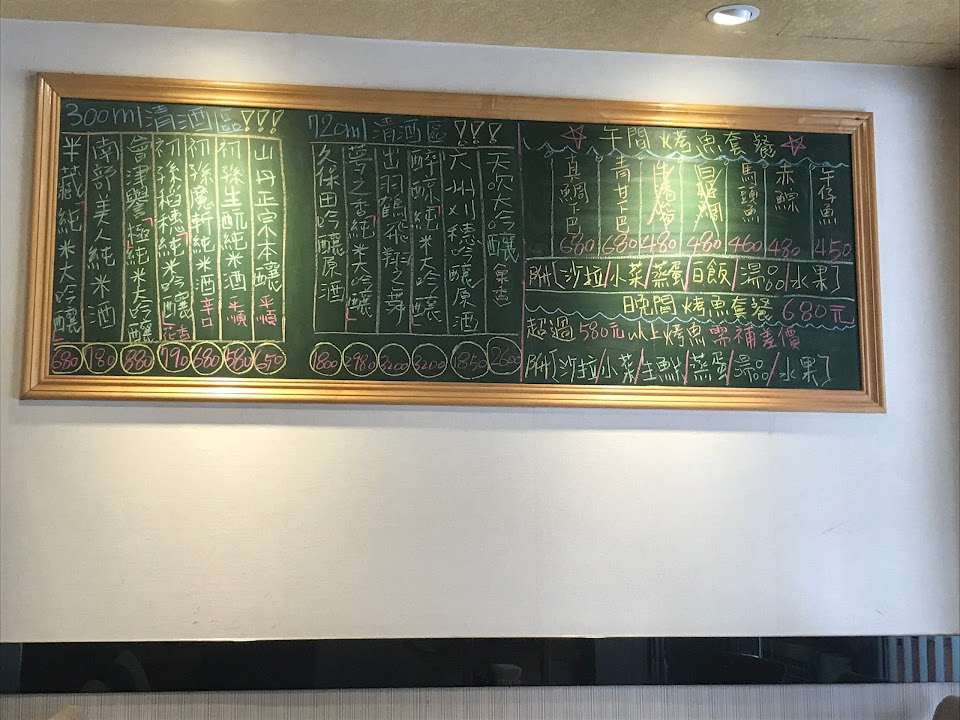 300ml清酒區!!!
山丹正宗本釀 平順 650
初孫生酛純米酒 平順 580
初孫魔斬純米酒 辛口 680
初孫稻穗純米吟釀 花香 790
會津譽極純米大吟釀 880
南部美人純米酒 780
半藏純米大吟釀 680
720ml清酒區!!!
天吹大吟釀 果香 2600
六州刈穗吟釀原酒 1850
醉鯨純米大吟釀 3200
出羽鶴飛翔之舞 3200
夢之香純米大吟釀 2980
久保田吟釀原酒 1800
☆午間烤魚套餐☆
午仔魚 450
赤鯮 480
馬頭魚 460
480
480
青甘下巴 680
真鯛下巴 680
附[沙拉/小菜/蒸蛋/白飯/湯品/水果]
晚間烤魚套餐 680元
超過580元以上烤魚需補差價
附[沙拉/小菜/生魚片/蒸蛋/湯品/水果]